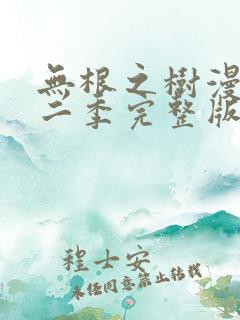 無根之樹漫
二季完整版
程士安
未經同意禁止轉載